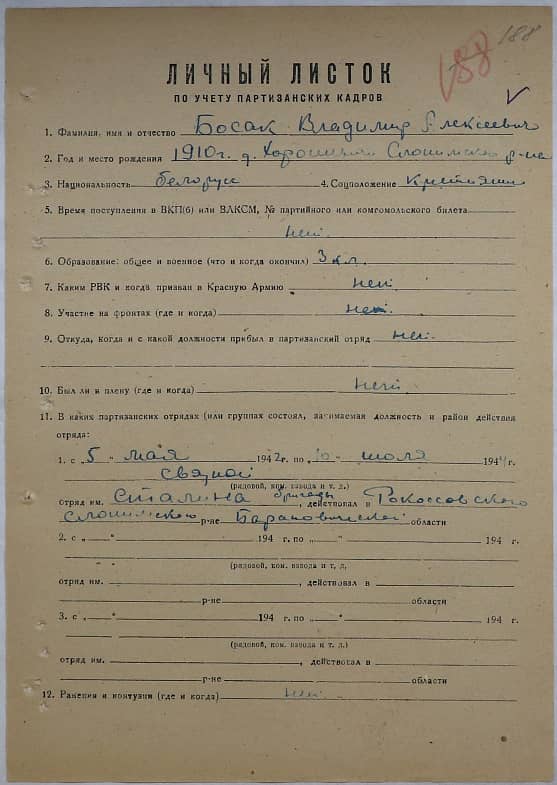 188
188
ЛИЧНЫЙ ЛИСТОК
ПО УЧЕТУ ПАРТИЗАНСКИХ КАДРОВ
1. Фамилия, имя и отчество Босак Владимир Алексеевич
2. Год и место рождения 1910 г. д. Слонимского р-на
3. Национальность белорус 4. Соцположение
5. Время поступления в ВКП(б) или ВЛКСМ, № партийного или комсомольского билета
нет
6. Образование: общее и военное (что и когда окончил) 3 кл.
7. Каким РВК и когда призван в Красную Армию нет
8. Участие на фронтах (где и когда) нет
9. Откуда, когда и с какой должности прибыл в партизанский отряд нет
10. Был ли в плену (где и когда) нет
11. В каких партизанских отрядах (или группах состоял, занимаемая должность и район действия
отряда:
1. с „5“ мая 1942 г. по „10“ июля 1944 г.
связной
(рядовой, ком. взвода и т. д.)
отряд им. Сталина бригады, действовал в Рокоссовского
Слонимском р-не Барановичской области
2. с „ “ 194 г. по „ “ 194 г.
(рядовой, ком. взвода и т. д.
отряд им. , действовал в
р-не области
3. с „ “ 194 г. по „ “ 194 г.
(рядовой, ком. взвода и т. д.)
отряд им. , действовал в
р-не области
12. Ранения и контузии (где и когда) нет